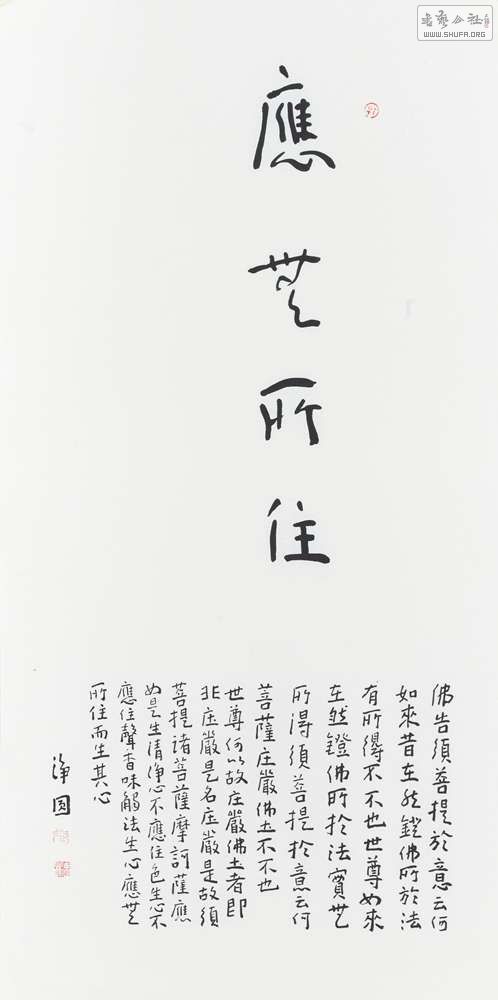 書藝公社
WWW.SHUFA.ORG
應无所住
佛告須菩提於意云何
如來昔在然鐙佛所於法
有所得不不也世尊如來
在然鐙佛所於法實无
所得須菩提於意云何
菩薩庄嚴佛土不不也
世尊何以故庄嚴佛土者即
非庄嚴是名庄嚴是故須
菩提諸菩薩摩訶薩應
如是生清淨心不應住色生心不
應住聲香味觸法生心應无
所住而生其心
淨因